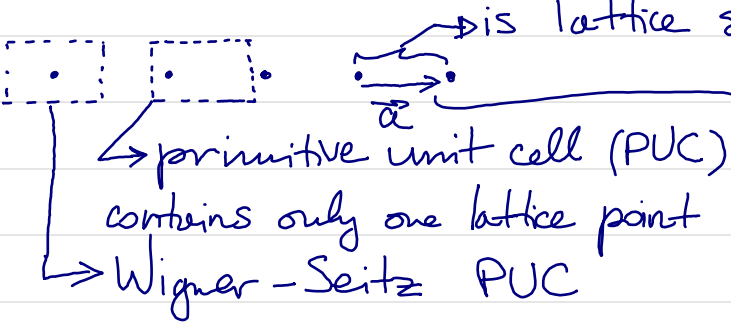 is lattice
a
primitive unit cell (PUC)
contains only one lattice point
Wigner-Seitz PUC